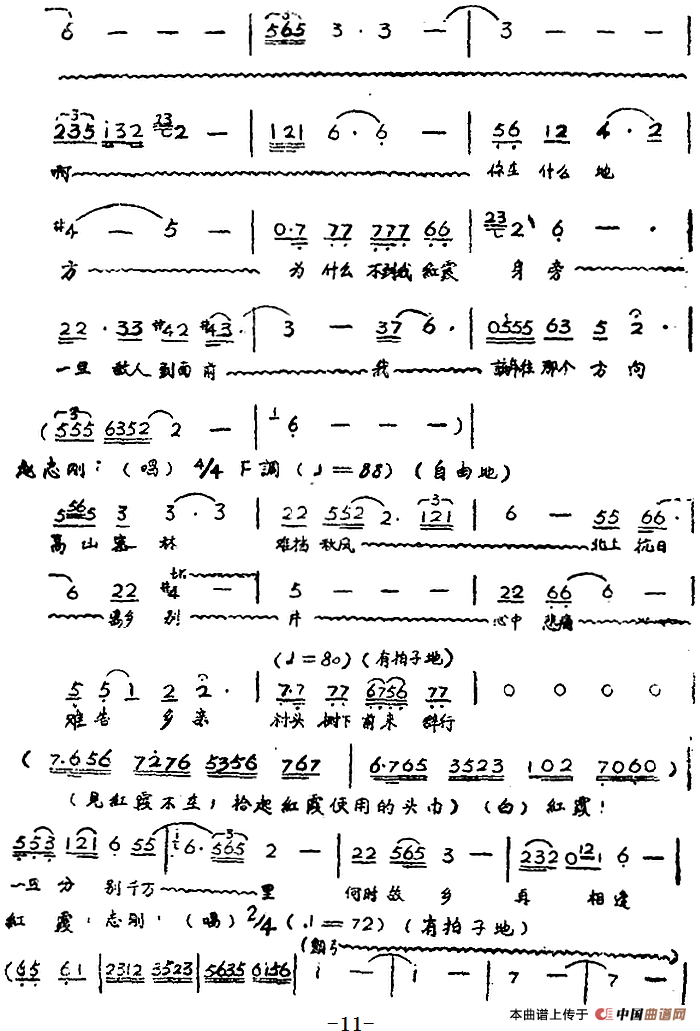 6 — — — | 565 3 · 3 — | 3 — — —
235 i32 2 — | 121 6 · 6 — | 56 12 4 · 2
啊 你在 什么 地
#4 — 5 — | 0·7 77 777 66 | 2 6 — ·
方 为 什么 不到我 紅霞 身 旁
22 · 33 #42 #43 · | 3 — 37 6 · | 0555 63 5 2 ·
一旦 敌人 到面 前 我 那个 方 向
(555 6352 2 — | 6 — — —) |
赵志刚：（唱） 4/4 F調（♩=88）（自由地）
5565 3 3 · 3 | 22 552 2 · 121 | 6 — 55 66 ·
高 山 寒 林 难挡 秋风 北上 抗日
6 22 #4 — | 5 — — — | 22 66 6 —
离乡 别 井 心中 悲痛
(♩=80)（有拍子地）
5 5 1 2 2 · | 7·7 77 6756 77 | 0 0 0 0
难舍 乡 亲 村头 树下 前来 群行
( 7·656 7276 5356 767 | 6·765 3523 102 7060 )
（見紅霞不在，拾起紅霞使用的头巾）（白）紅霞！
553 121 6 55 | 6 · 565 2 — | 22 565 3 — | 232 0121 6 — |
一旦 分 别千万 里 何时 故 乡 再 相逢
紅 霞：志刚：（唱） 2/4（♩=72）（有拍子地）
(65 61 | 2312 3523 | 5635 6156 | i — | i — | 7 — | 7 — |
-11-
本曲谱上传于 中国曲谱网